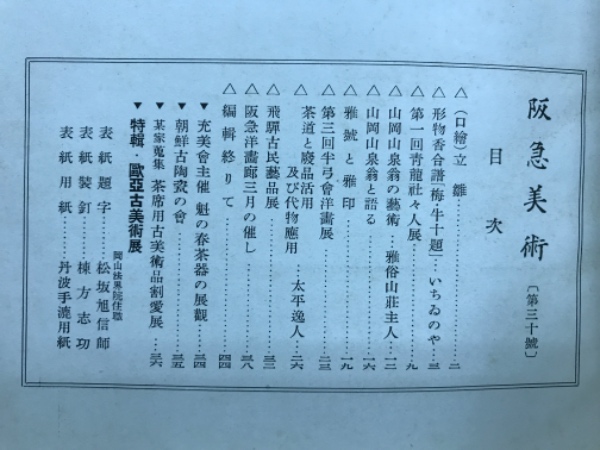 阪急美術〔第三十號〕
目次
△（口繪）立雛…………二
△形物香合譜「梅・牛十題」…いちゐのや…三
△第一回青龍社々人展…………九
△山岡山泉翁の藝術…雅俗山莊主人…一二
△山岡山泉翁と語る…………一六
△雅號と雅印…………一九
△第三回半弓會洋畫展…………二三
茶道と廢品活用
及び代物應用…太平逸人…二六
△飛驒古民藝品展…………三三
△阪急洋畫廊三月の催し…………三八
△編輯終りて…………四四
▼充美會主催 魁の春茶器の展觀…………三四
▼朝鮮古陶瓷の會…………三五
某家蒐集 茶席用古美術品割愛展…三六
▼特輯・歐亞古美術展
岡山法界院住職
表紙題字………松坂旭信師
表紙裝釘………棟方志功
表紙用紙………丹波手漉用紙